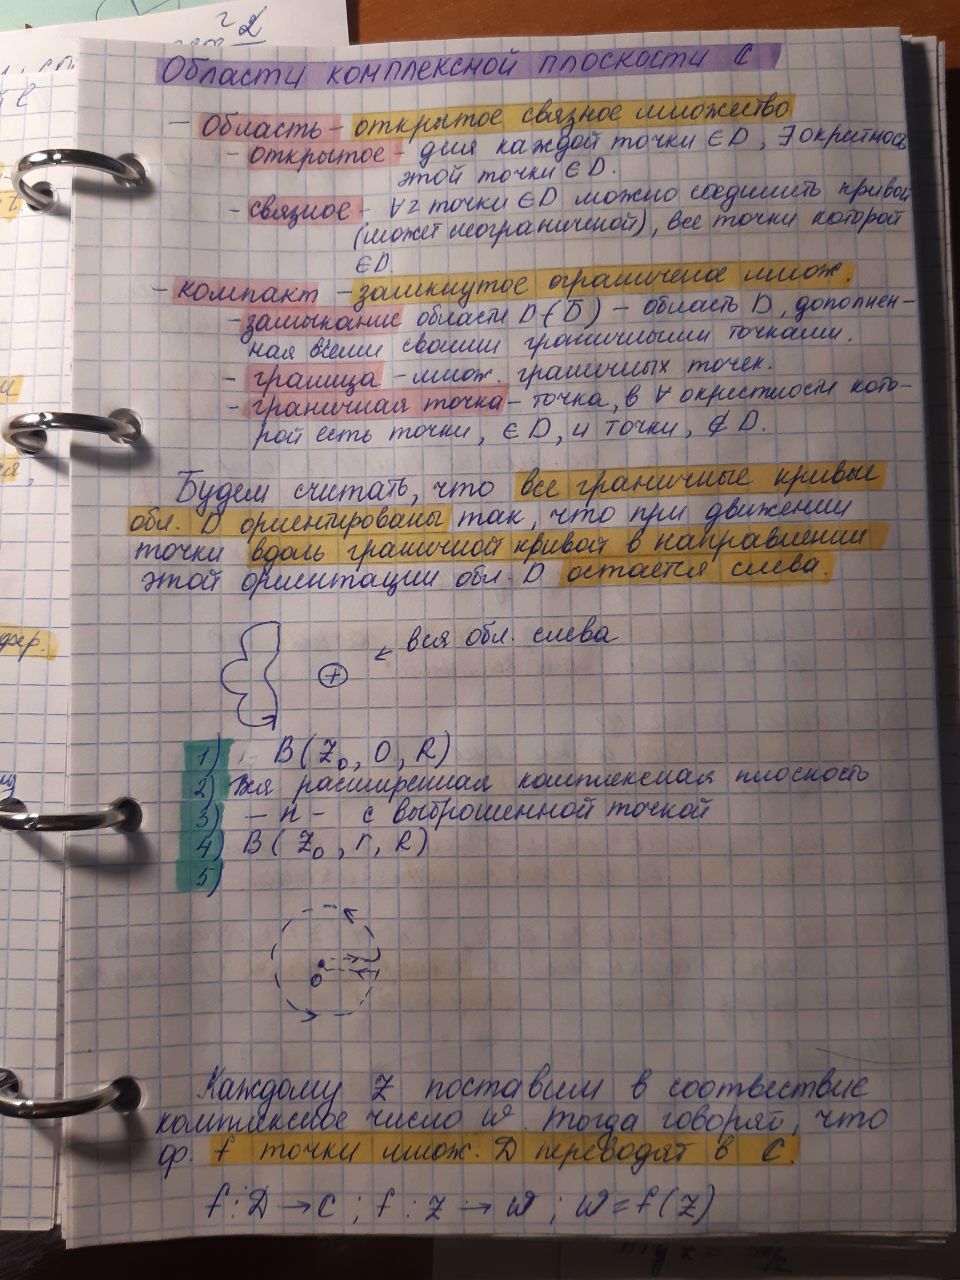 Области комплексной плоскости C
- Область - открытое связное множество
- открытое - для каждой точки ∈ D, ∃ окрестнос
этой точки ∈ D.
- связное - ∀ 2 точки ∈ D можно соединить кривой
(может неограничной), все точки которой
∈ D.
- компакт - замкнутое ограниченое множ.
- замыкание области D (D̅) - область D, дополнен-
ная всеми своими граничными точками.
- граница - множ. граничных точек.
- граничная точка - точка, в ∀ окрестности кото-
рой есть точки, ∈ D, и точки, ∉ D.
Будем считать, что все граничные кривые
обл. D ориентированы так, что при движении
точки вдоль граничной кривой в направлении
этой ориентации обл. D остается слева.
+ ← вся обл. слева
1) B(z₀, 0, R)
2) Вся расширенная комплексная плоскость
3) - п - с выброшенной точкой
4) B(z₀, r, R)
5)
0
Каждому z поставим в соотвествие
комплексное число w. Тогда говорят, что
ф. f точки множ. D переводят в C.
f : D → C ; f : z → w ; w = f(z)